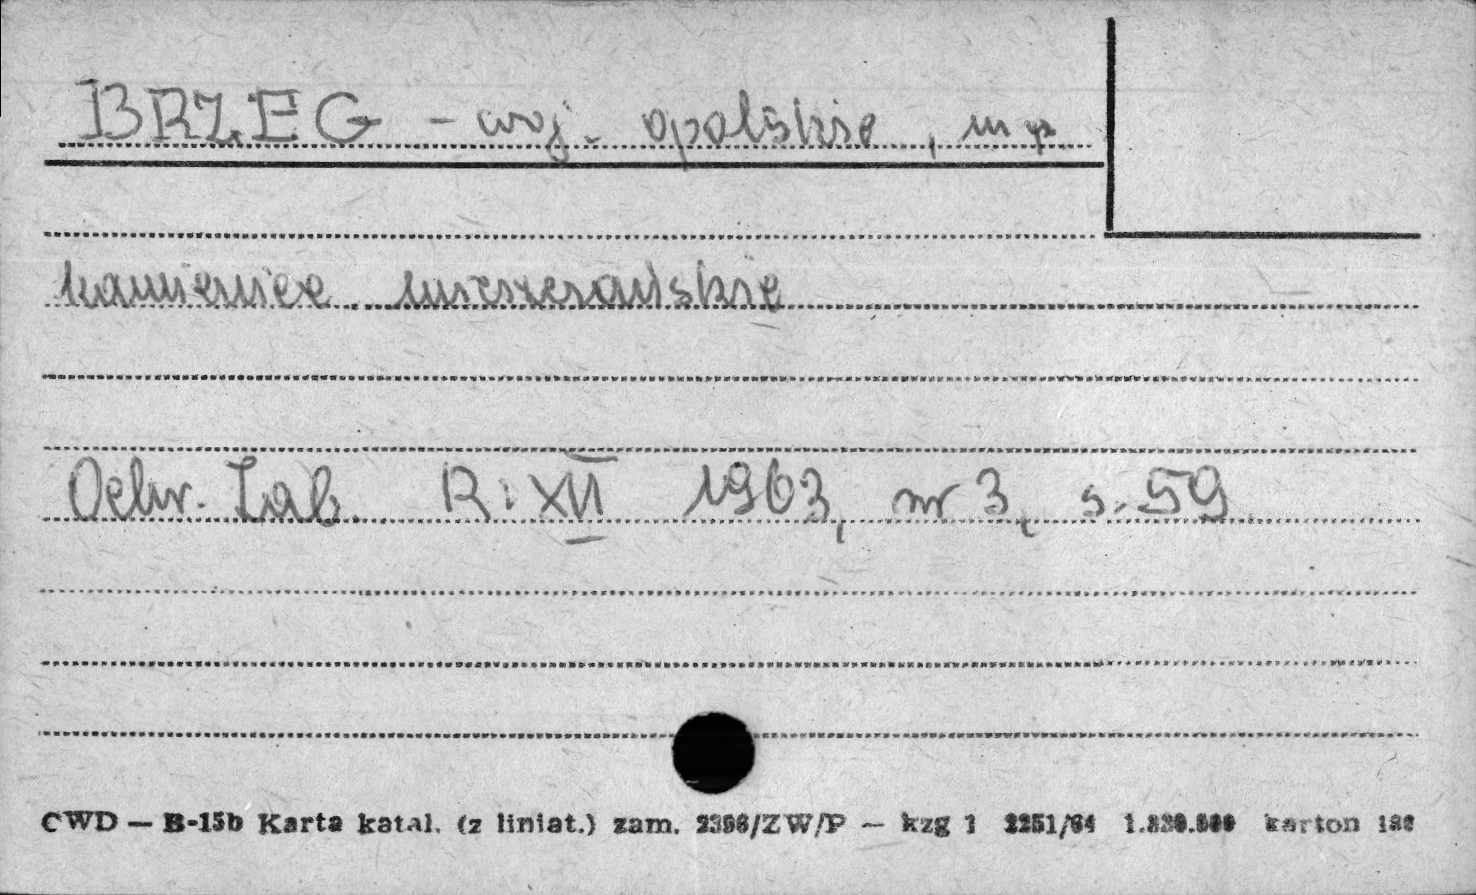 BRZEG - woj. opolskie, m p
kamienice mieszczańskie
Ochr. Zab. R. XVI 1963, nr 3, s. 59
CWD — B-15b Karta katal. (z liniat.) zam. 2396/ZW/P — kzg 1 2251/64 karton